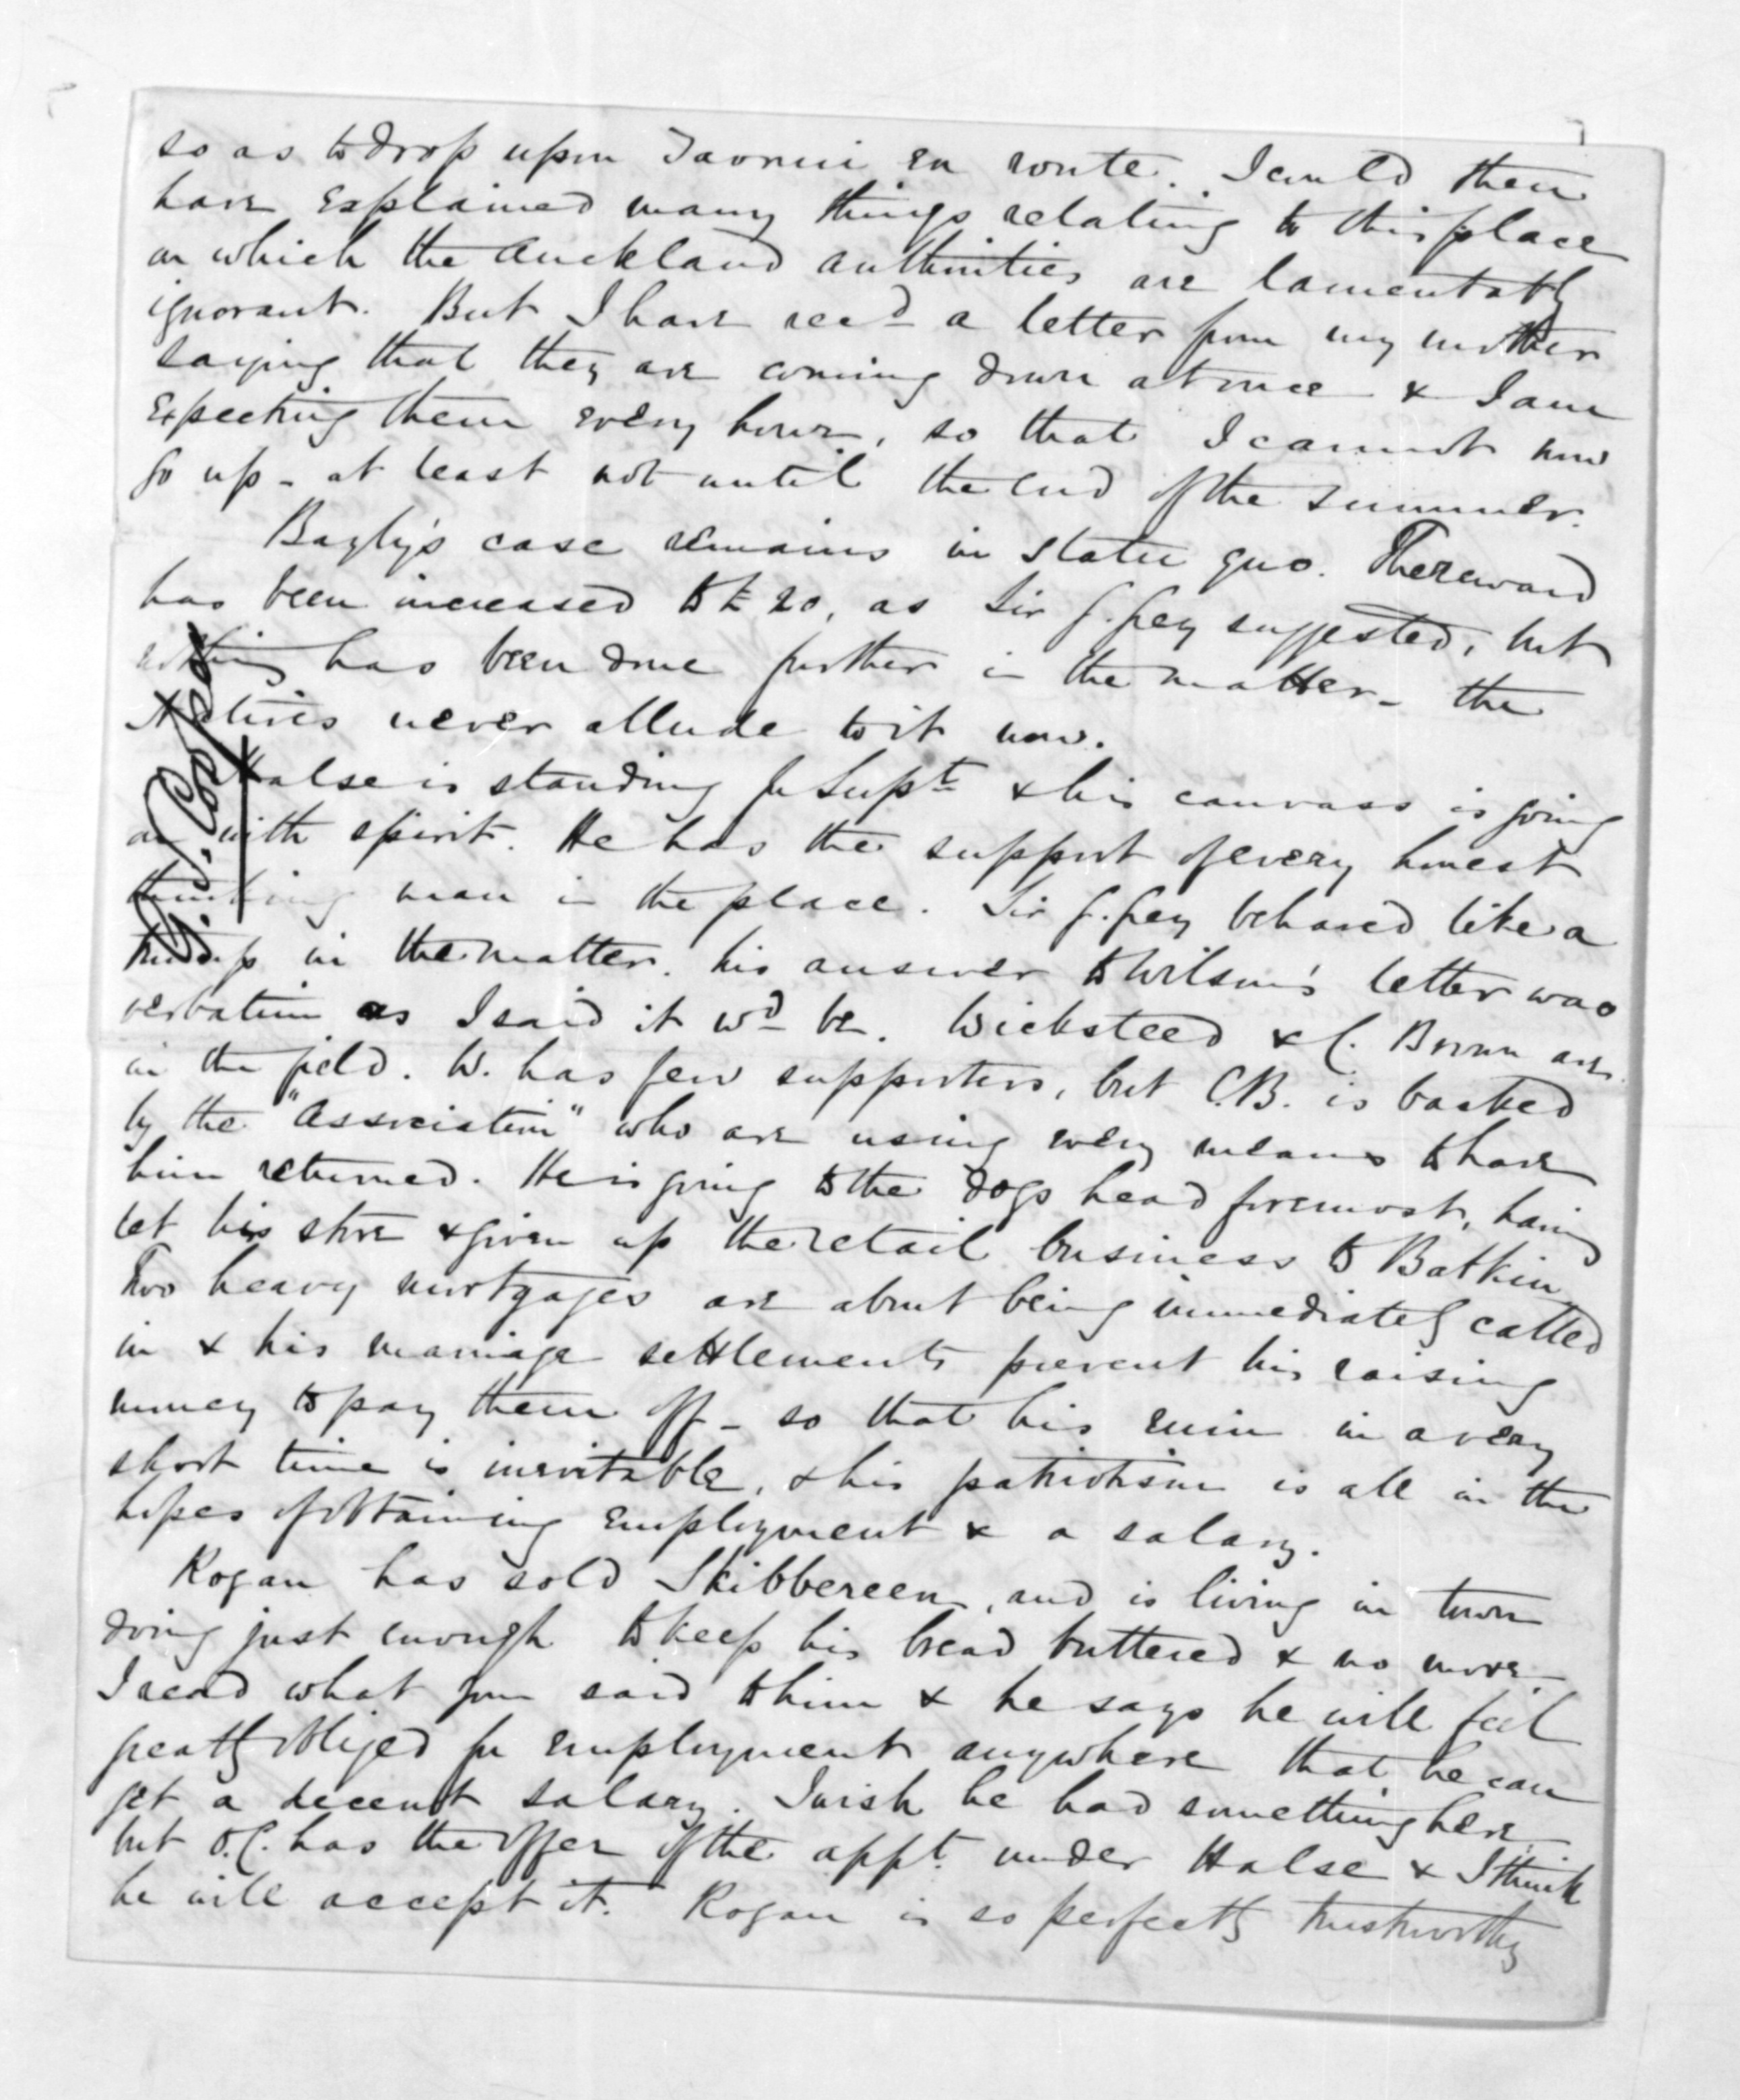 so as to drop upon Taonui en route. I could then
have explained many things relating to this place
on which the Auckland authorities are lamentably
ignorant. But I have recd a letter from my mother
saying that they are coming down at once & I am
expecting them every hour, so that I cannot now
go up - at least not until the end of the summer.
Bayly's case remains in statu quo. The reward
has been increased to £20, as Sir G. Grey suggested, but
nothing has been done further in the matter - the
Natives never allude to it now.
Halse is standing for Supt & his canvass is going
on with spirit. He has the support of every honest
thinking man in the place. Sir G. Grey behaved like a
in the matter. his answer to Wilson's letter was
verbatim as I said it wd be. Wicksteed & C. Brown are
in the field. W. has few supporters, but C.B. is backed
by the "Association" who are using every means to have
him returned. He is going to the dogs head foremost, having
let his store & given up the retail business to Batkin
Two heavy mortgages are about being immediately called
in & his marriage settlements prevent his raising
money to pay them off - so that his ruin in a very
short time is inevitable, & his patriotism is all in the
hopes of obtaining employment & a salary.
Rogan has sold Skibbereen, and is living in town
doing just enough to keep his bread buttered & no more.
I read what you said to him & he says he will feel
greatly obliged for employment anywhere that he can
get a decent salary. I wish he had something here,
but O.C. has the offer of the appt. under Halse & I think
he will accept it. Rogan is so perfectly trustworthy